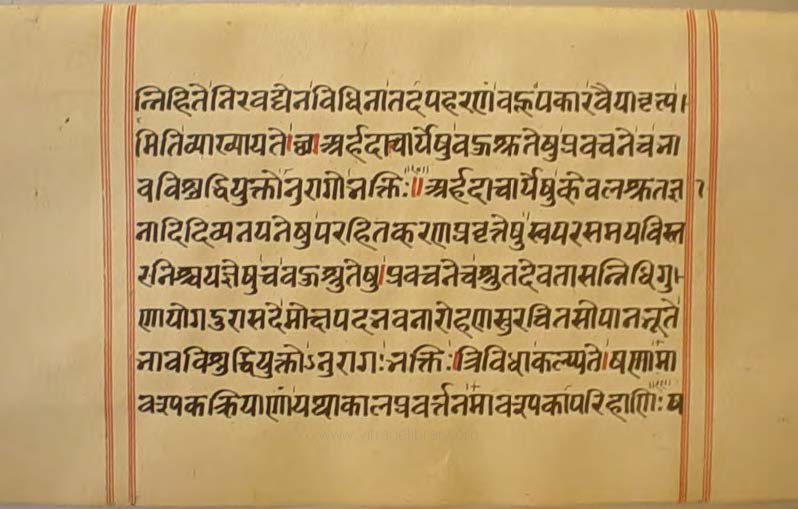 न्निहितेनिरवद्येनविधिनातदपहरणंवह्रपकारंवैयावृत्य।
मितिव्याख्यायते।छ।अर्हदाचार्येषुवऊश्रुतेषुप्रवचनेचना
वविशुद्धियुक्तोनुरागोनक्तिः॥अर्हदाचार्येषुकेवलश्रुतज्ञ १
नादिदिव्यनयनेषुपरहितकरणप्रवृत्तेषुस्वपरसमयविस्त
रनिश्चयज्ञेषुचवऊश्रुतेषु।प्रवचनेचश्रुतदेवतासन्निधिगु।
णयोगडुरासदेमोक्षपदनवनारोहणसुरचितसोपाननूते
नावविशुद्धियुक्तोऽनुरागःनक्तिःत्रिविधाकल्प्यते।षणामा
वश्यकक्रियाणांयथाकालप्रवर्त्तनमावश्यकापरिहाणिःष